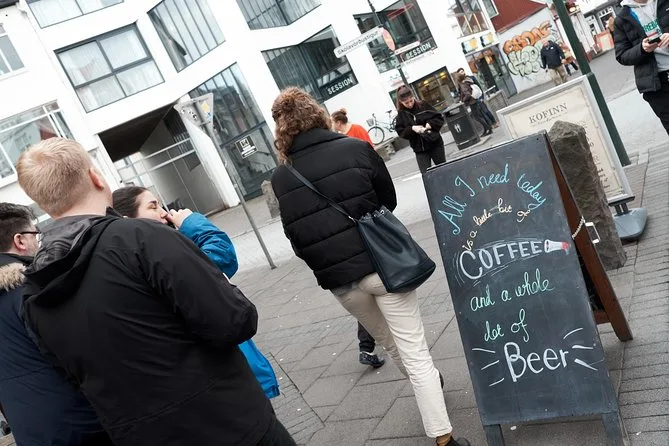 SESSION
SESSION
KOFINN
All I need today
is a little bit of
COFFEE
and a whole
lot of
Beer